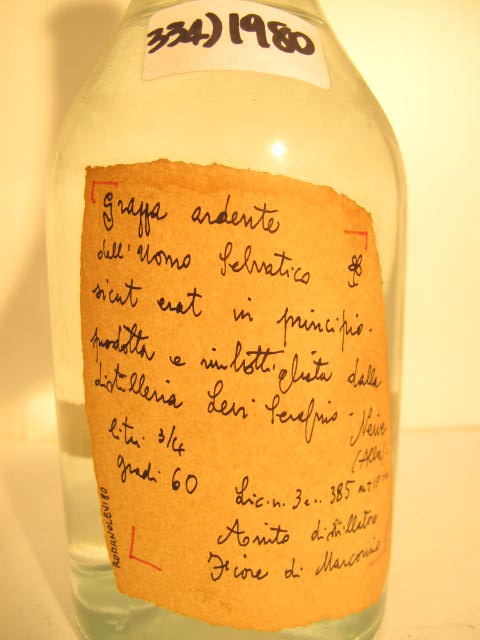 334) 1980
grappa ardente
dell'Uomo Selvatico
sicut erat in principio.
prodotta e imbottigliata dalla
distilleria Levi Serafino - Neive
(Alba)
litri 3/4
gradi 60
Lic. n. 3 e.. 385
distillatore
Fiore di
ROMANOLEVI80